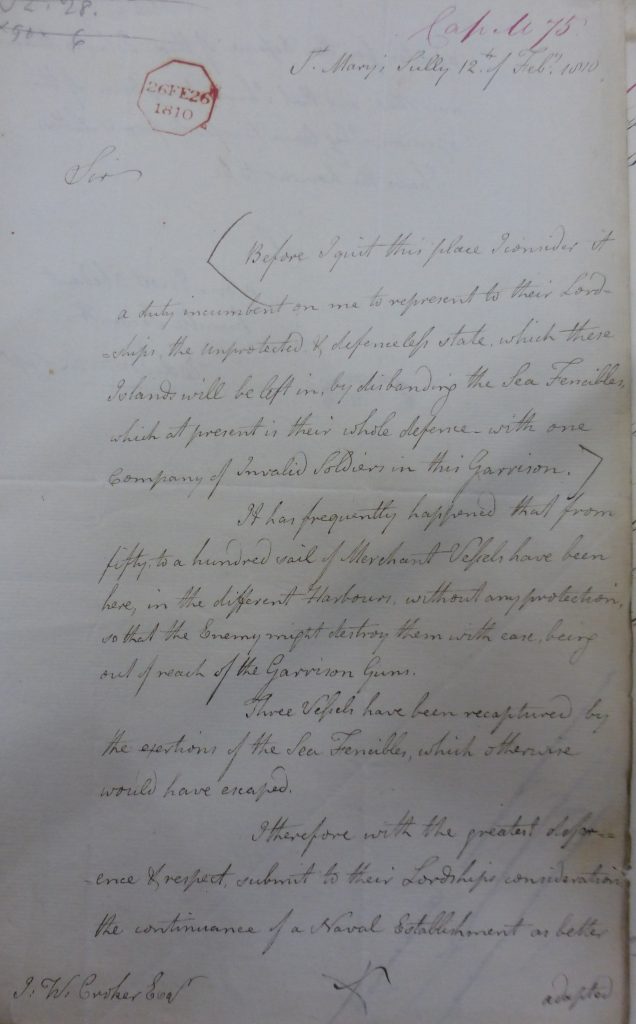 Cap. M 75
St. Mary's Scilly 12th of Feby. 1810.
26 FE 26
1810
Sir
Before I quit this place I consider it
a duty incumbent on me to represent to their Lord-
-ships, the unprotected & defenceless state, which these
Islands will be left in, by disbanding the Sea Fencibles,
which at present is their whole defense - with one
Company of Invalid Soldiers in this Garrison.
It has frequently happened that from
fifty, to a hundred sail of Merchant Vessels have been
here, in the different Harbours, without any protection,
so that the Enemy might destroy them with ease, being
out of reach of the Garrison Guns.
Three Vessels have been recaptured by
the exertions of the Sea Fencibles, which otherwise
would have escaped.
I therefore with the greatest defer-
-ence & respect, submit to their Lordships consideration
the continuance of a Naval Establishment as better
J. W. Croker Esqr
adapted